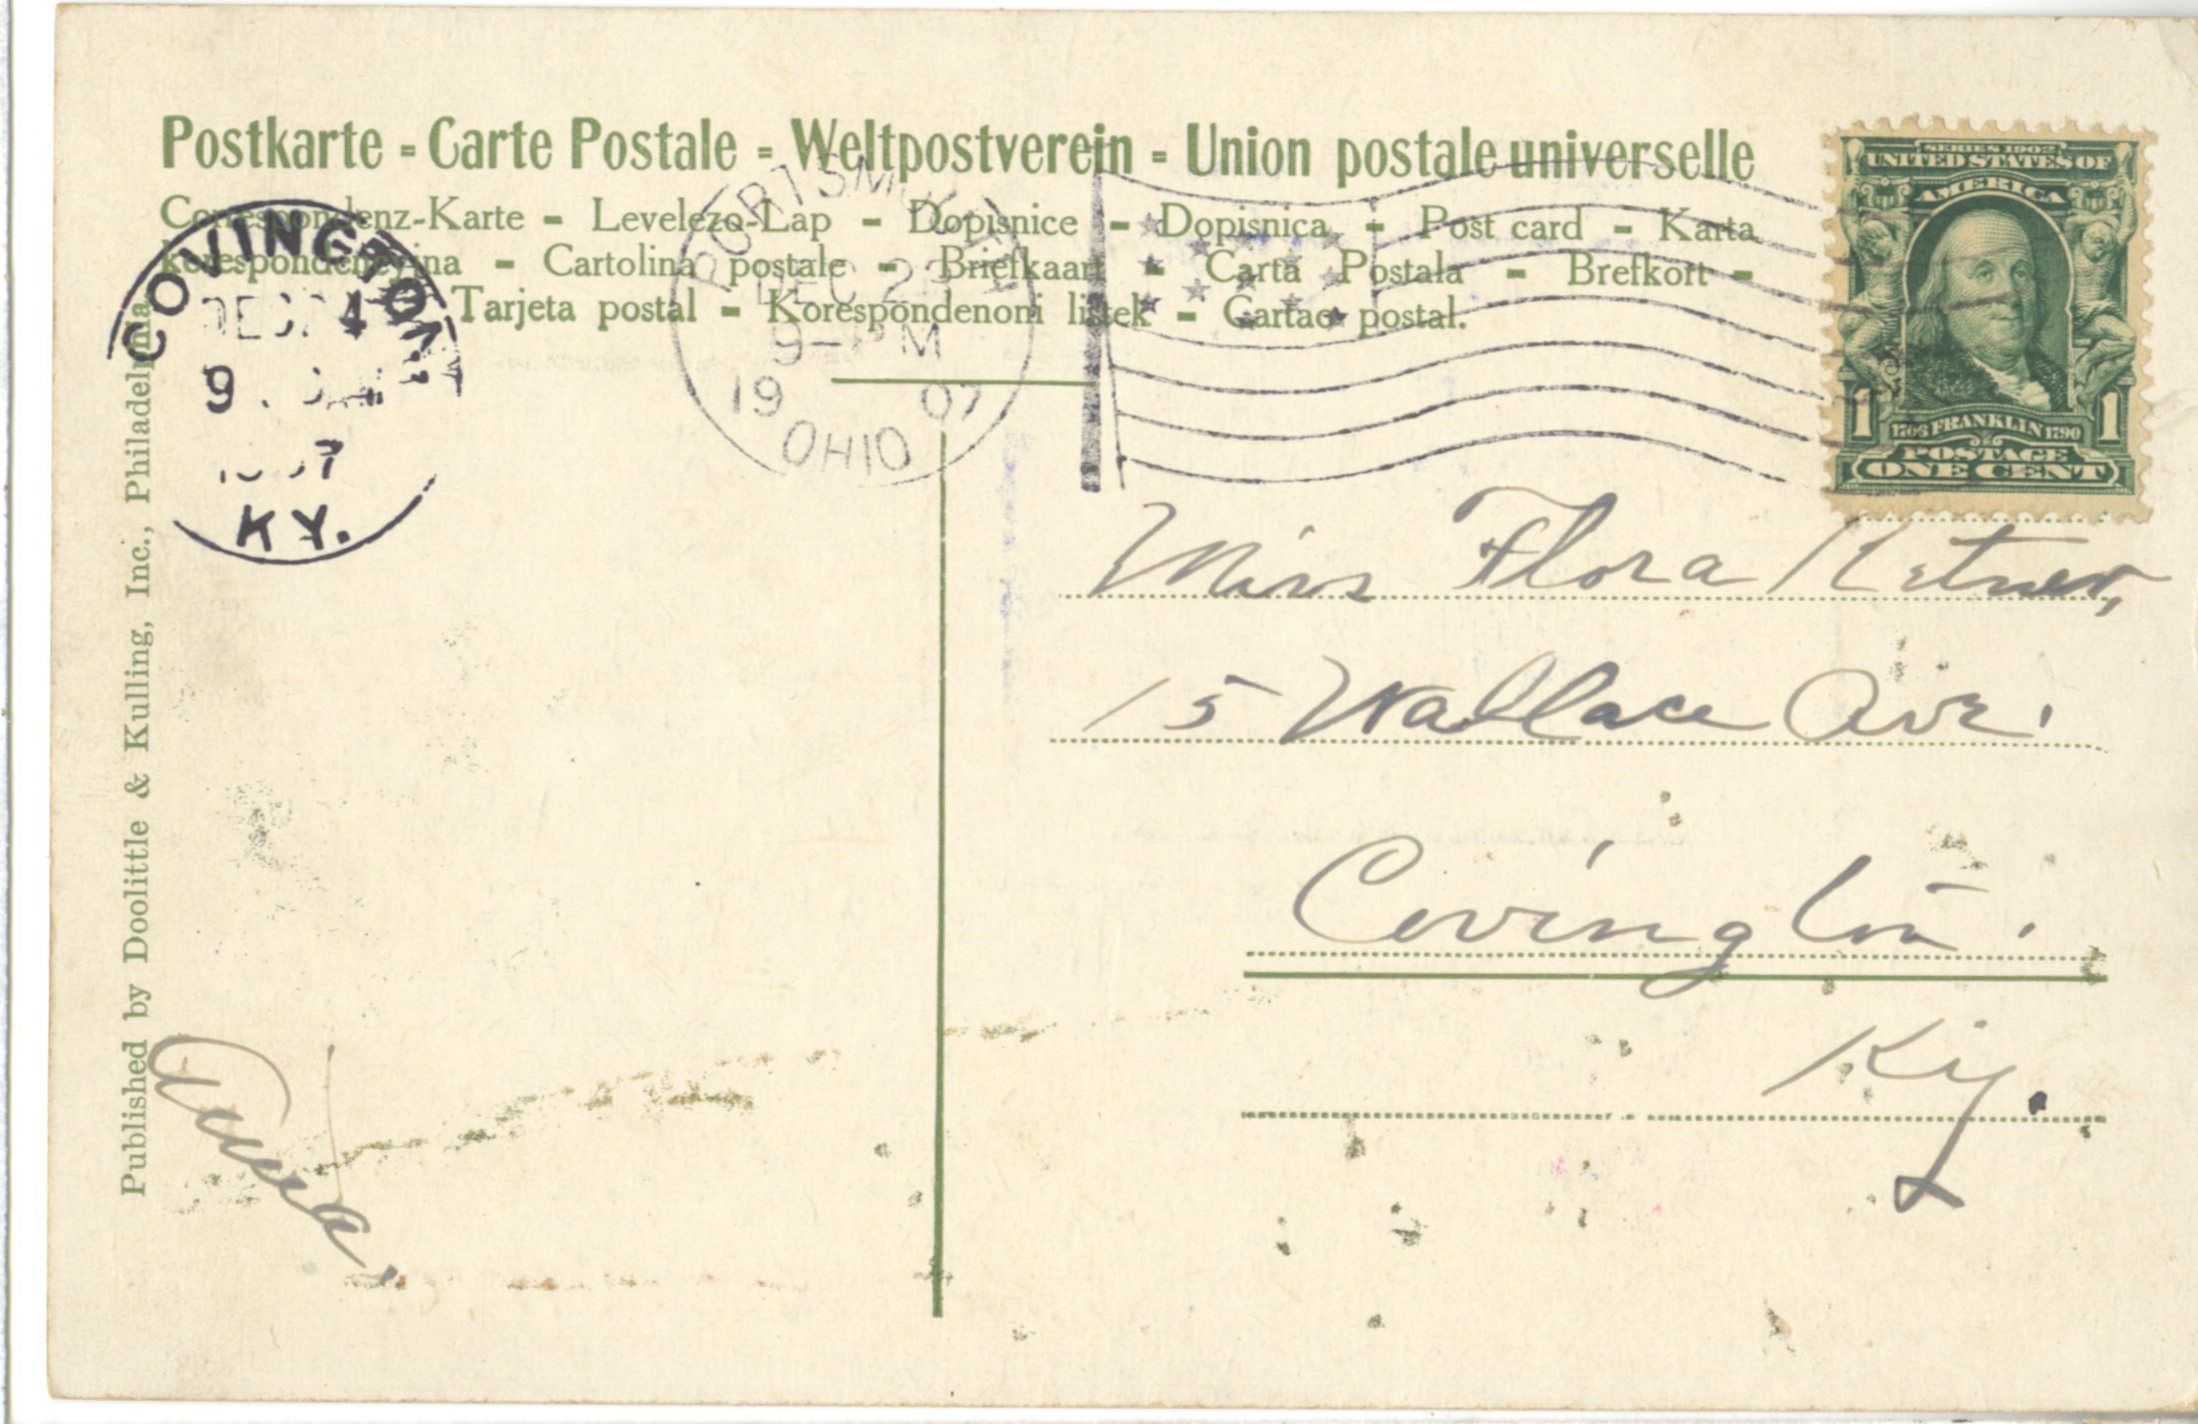 Postkarte - Carte Postale - Weltpostverein - Union postale universelle
Correspondenz-Karte - Levelezo-Lap - Dopisnice - Dopisnica - Post card - Karta
korespondencyjna - Cartolina postale - Briefkaart - Carta Postala - Brefkort -
Tarjeta postal - Korespondenoni listek - Cartao postal.
COVINGTON
DEC 24
9
KY.
PORTSMOUTH
DEC 23
9-PM
19 07
OHIO
SERIES 1902
UNITED STATES OF
AMERICA
1 1
1706 FRANKLIN 1790
POSTAGE
ONE CENT
Miss Flora
15 Wallace Ave.
Covington.
Ky.
Published by Doolittle & Kulling, Inc., Philadelphia
Anna.